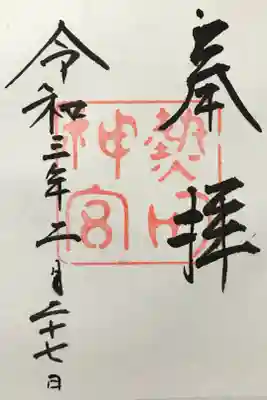 奉拝
熱田神宮
令和三年二月二十七日